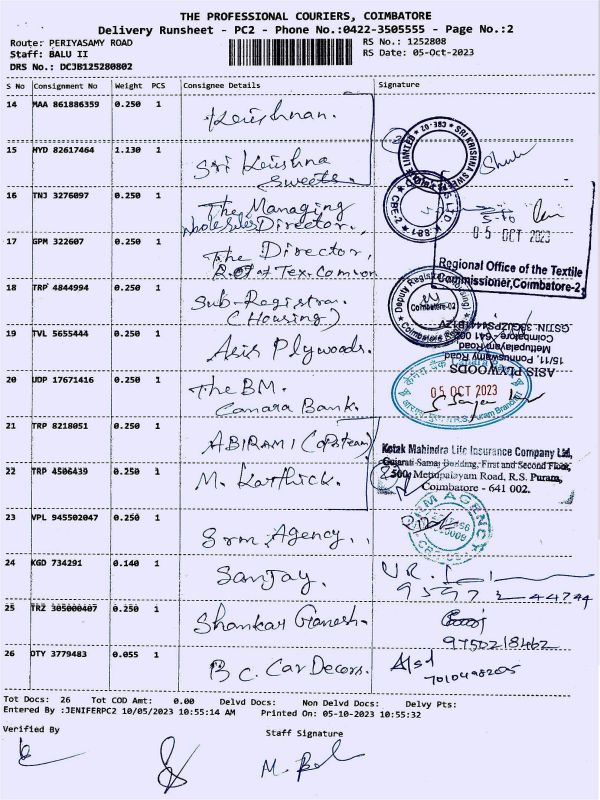 THE PROFESSIONAL COURIERS, COIMBATORE
Delivery Runsheet - PC2 - Phone No.:0422-3505555 - Page No.:2
Route: PERIYASAMY ROAD
RS No.: 1252808
Staff: BALU II
RS Date: 05-Oct-2023
DRS No.: DCJB125280802
S No Consignment No Weight PCS Consignee Details Signature
14 MAA 861886359 0.250 1 Krishnan.
15 HYD 82617464 1.130 1 Sri Krishna
Sweets.
16 TNJ 3276097 0.250 1 The Managing
Director.,
17 GPM 322607 0.250 1 The Director,
R.O of Tex.Comson
05 OCT 2023
Regional Office of the Textile
Commissioner, Coimbatore-2
18 TRP 4844994 0.250 1 Sub-Registrar
(Housing)
Coimbatore-02
19 TVL 5655444 0.250 1 Asis Plywoods.
ASIS PLYWOODS
15/11, Ponnuswamy Road
Mettupalayam Road
Coimbatore - 641 002
20 UDP 17671416 0.250 1 The BM.
Canara Bank.
05 OCT 2023
R.S. Puram Branch
21 TRP 8218051 0.250 1 ABIRAMI
Kotak Mahindra Life Insurance Company Ltd,
Gujarati Samaj Building, First and Second Floor,
Mettupalayam Road, R.S. Puram,
Coimbatore - 641 002.
22 TRP 4506439 0.250 1 M. Karthick.
23 VPL 945502047 0.250 1 Srm Agency..
24 KGD 734291 0.140 1 Sanjay.
25 TRZ 305000407 0.250 1 Shankar Ganesh.
9750218462
26 OTY 3779483 0.055 1 B.C. Car Decors.
7010498205
Tot Docs: 26 Tot COD Amt: 0.00 Delvd Docs: Non Delvd Docs: Delvy Pts:
Entered By :JENIFERPC2 10/05/2023 10:55:14 AM Printed On: 05-10-2023 10:55:32
Verified By
Staff Signature